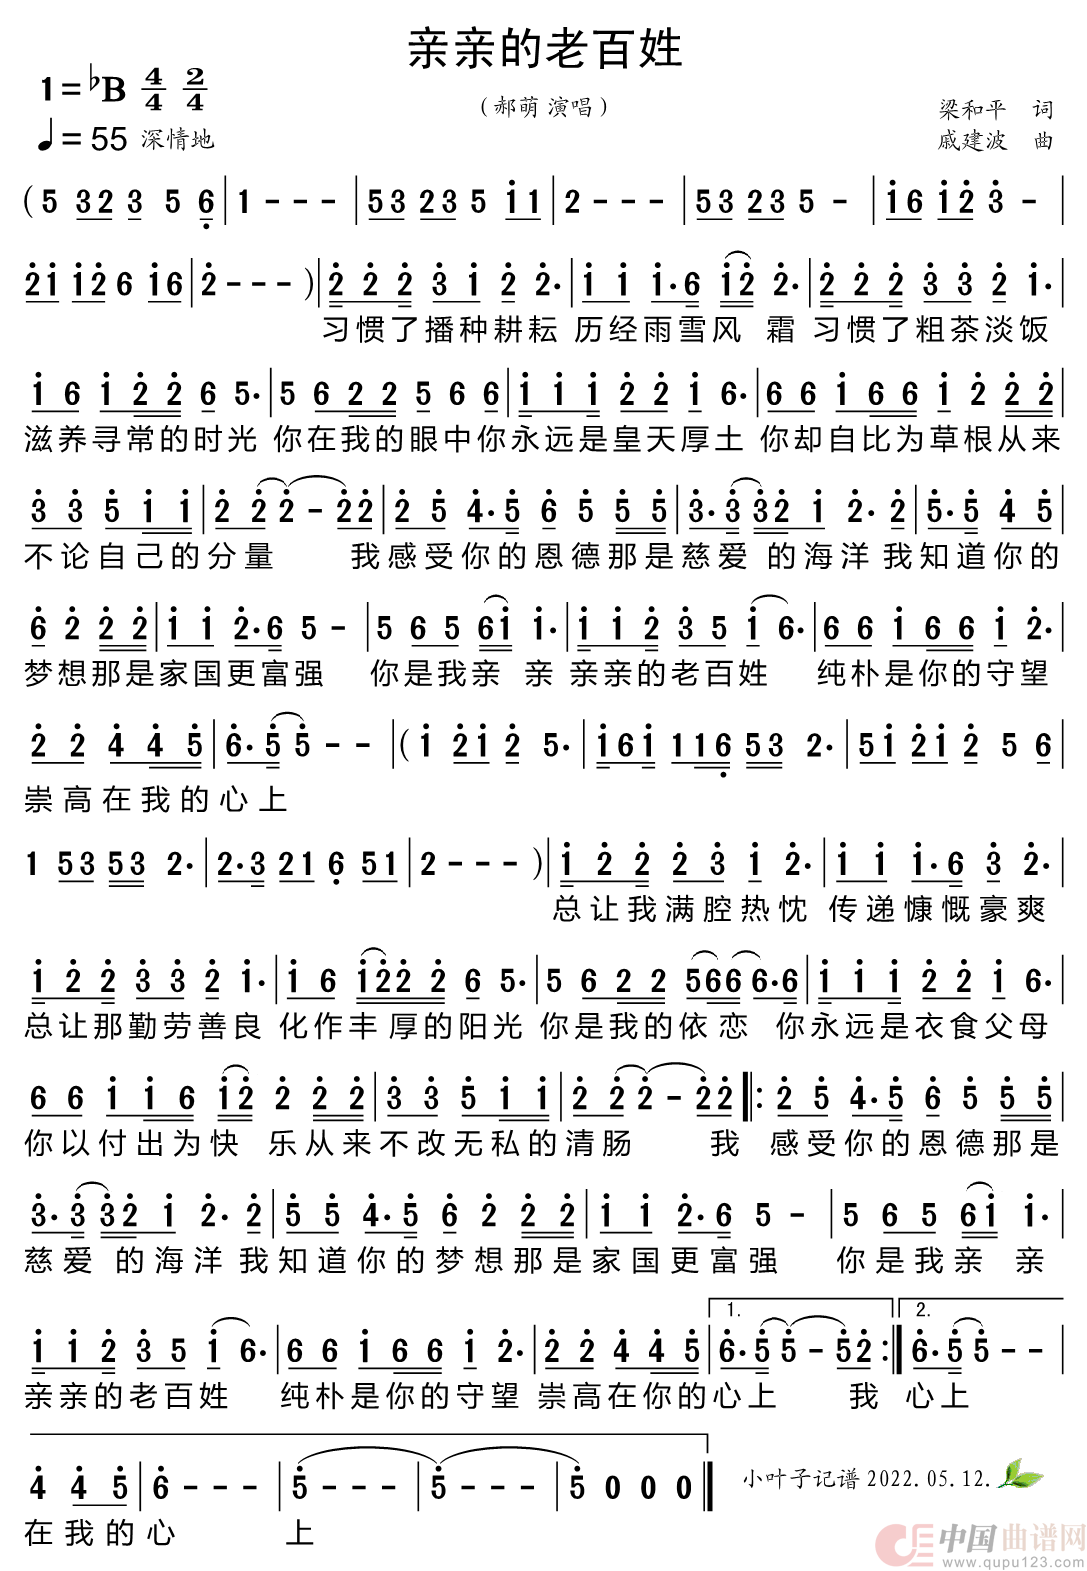 亲亲的老百姓
1=♭B 4/4 2/4
（郝萌 演唱）
梁和平 词
♩=55 深情地
戚建波 曲
(5 32 3 5 6 | 1 - - - | 53 23 5 i1 | 2 - - - | 53 23 5 - | i6 i2 3 - |
2i i2 6 i6 | 2 - - - ) | 2 2 2 3 i 2 2· | i i i·6 i2 2· | 2 2 2 3 3 2 i· |
习惯了播种耕耘 历经雨雪风 霜 习惯了粗茶淡饭
i 6 i 2 2 6 5· | 5 6 2 2 5 6 6 | i i i 2 2 i 6· | 6 6 i 6 6 i 2 2 2 |
滋养寻常的时光 你在我的眼中你永远是皇天厚土 你却自比为草根从来
3 3 5 i i | 2 2 2 - 2 2 | 2 5 4·5 6 5 5 5 | 3·3 32 i 2· 2 | 5·5 4 5 |
不论自己的分量 我感受你的恩德那是慈爱 的海洋 我知道你的
6 2 2 2 | i i 2·6 5 - | 5 6 5 6i i· | i i 2 3 5 i 6· | 6 6 i 6 6 i 2· |
梦想那是家国更富强 你是我亲 亲 亲亲的老百姓 纯朴是你的守望
2 2 4 4 5 | 6·5 5 - - | (i 2i 2 5· | i6i 116 53 2· | 5i 2i 2 5 6 |
崇高在我的心上
1 53 53 2· | 2·3 21 6 51 | 2 - - - ) | i 2 2 2 3 i 2· | i i i·6 3 2· |
总让我满腔热忱 传递慷慨豪爽
i 2 2 3 3 2 i· | i 6 i2 2 2 6 5· | 5 6 2 2 56 6 6·6 | i i i 2 2 i 6· |
总让那勤劳善良 化作丰厚的阳光 你是我的依恋 你永远是衣食父母
6 6 i i 6 i2 2 2 2 | 3 3 5 i i | 2 2 2 - 2 2 ‖: 2 5 4·5 6 5 5 5 |
你以付出为快 乐从来不改无私的清肠 我 感受你的恩德那是
3·3 32 i 2· 2 | 5 5 4·5 6 2 2 2 | i i 2·6 5 - | 5 6 5 6i i· |
慈爱 的海洋 我知道你的梦想那是家国更富强 你是我亲 亲
i i 2 3 5 i 6· | 6 6 i 6 6 i 2· | 2 2 4 4 5 | 1. 6·5 5 - 5 2 :‖ 2. 6·5 5 - - |
亲亲的老百姓 纯朴是你的守望 崇高在你的心上 我 心上
4 4 5 | 6 - - - | 5 - - - | 5 - - - | 5 0 0 0 ‖
小叶子记谱 2022.05.12.
在我的心 上
中国曲谱网
www.qupu123.com